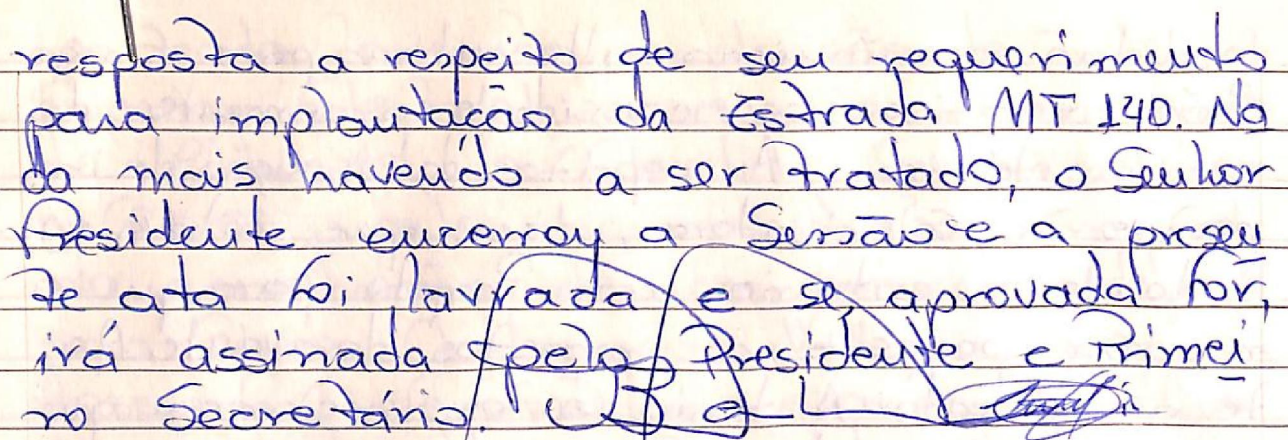 resposta a respeito de seu requerimento
para implantação da Estrada MT 140. Na
da mais havendo a ser tratado, o Senhor
Presidente encerrou a Sessão e a presen
te ata foi lavrada e se aprovada for,
irá assinada pelo Presidente e Primei
ro Secretário.